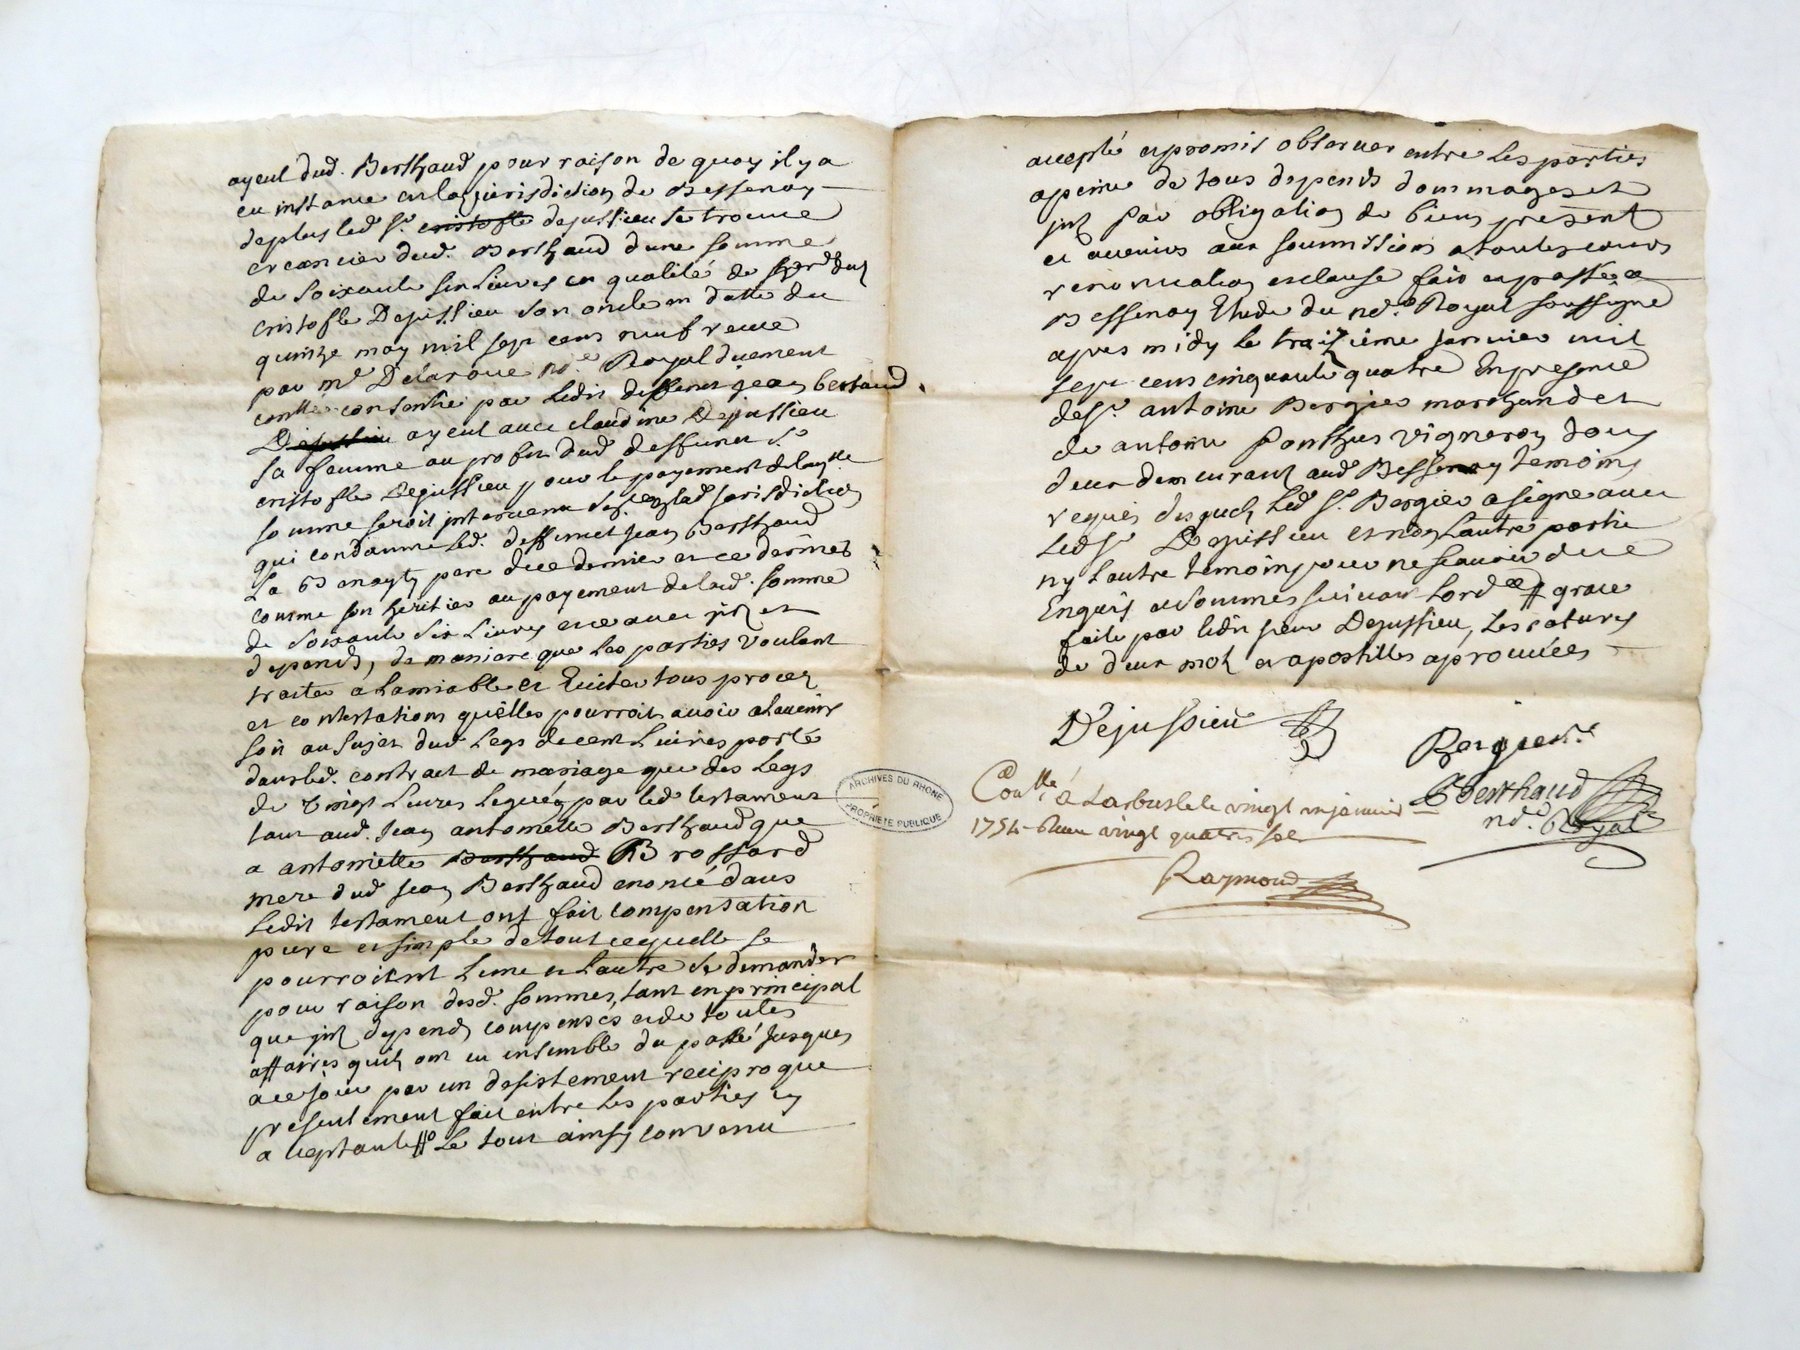 ayeul dud. Berthaud pour raison de quoy il y a
eu instance en la jurisdiction de Bessenay
de plus led. Sr. cristofle dejussieu se trouve
creancier dud. Berthaud dune somme
de soixante six livres en qualité de
cristofle Dejussieu son oncle en datte du
quinze may mil sept cens neuf receue
par me Delaroue no.re Royal duement
conllé consentie par ledit deffunt jean bertaud
Dejussieu ayeul avec claudine Dejussieu
sa femme au profit dud. deffunct Sr.
cristofle Dejussieu pour le payement de laqlle
somme seroit intervenu en lad. jurisdiction
qui condamne led. deffunct Jean Berthaud
pere de ce dernier et ce dernier
comme son heritier au payement de lad. somme
de soixante six livres et ce avec jnt et
depends, de maniere que les parties voulant
traiter a lamiable et Eviter tous proces
et contestations quelles pourroit avoir a lavenir
soit au sujet dud. Legs de cent Livres porté
dans led. contract de mariage que des Legs
de vingt Livres Legués par led. testament
tant aud. Jean antoinette Berthaud que
a antoinette Berthaud Brossard
mere dud. Jean Berthaud enoncé dans
Ledit testament ont fait compensation
pure et simple de tout ce quelle se
pourroient Lune et Lautre se demander
pour raison desd. sommes, tant en principal
que jnt depends compensés et de toutes
affaires quils ont eu ensemble du passé jusques
a ce jour par un desistement reciproque
presentement fait entre les parties
acceptant Le tout ainsy convenu
accepté et promis observer entre Les parties
a peine de tous depends dommages et
jnt par obligation de biens present
et avenirs aux soumissions a toutes cours
renonciation et clause fait et passé a
Bessenay Etude du no.re Royal soussigné
apres midy le traizieme janvier mil
sept cens cinquante quatre En presence
de Sr. antoine Bergier marchand et
de antoine Ponthus vigneron tous
deux demeurant aud. Bessenay temoins
requis desquels Led. Sr. Bergier a signé avec
Led. Sr. Dejussieu et non Lautre partie
ny Lautre temoin pour ne scavoir de ce
Enquis et sommes suivant Lord.ce grace
faite par ledit sieur Dejussieu, Les ratures
de deux mots et apostilles aprouvées
Dejussieu
Bergier
Conllé á Larbresle le vingt un janvier
1754 Receu vingt quatre sols
Berthaud
no.re Royal
Raymond
ARCHIVES DU RHONE
PROPRIÉTÉ PUBLIQUE